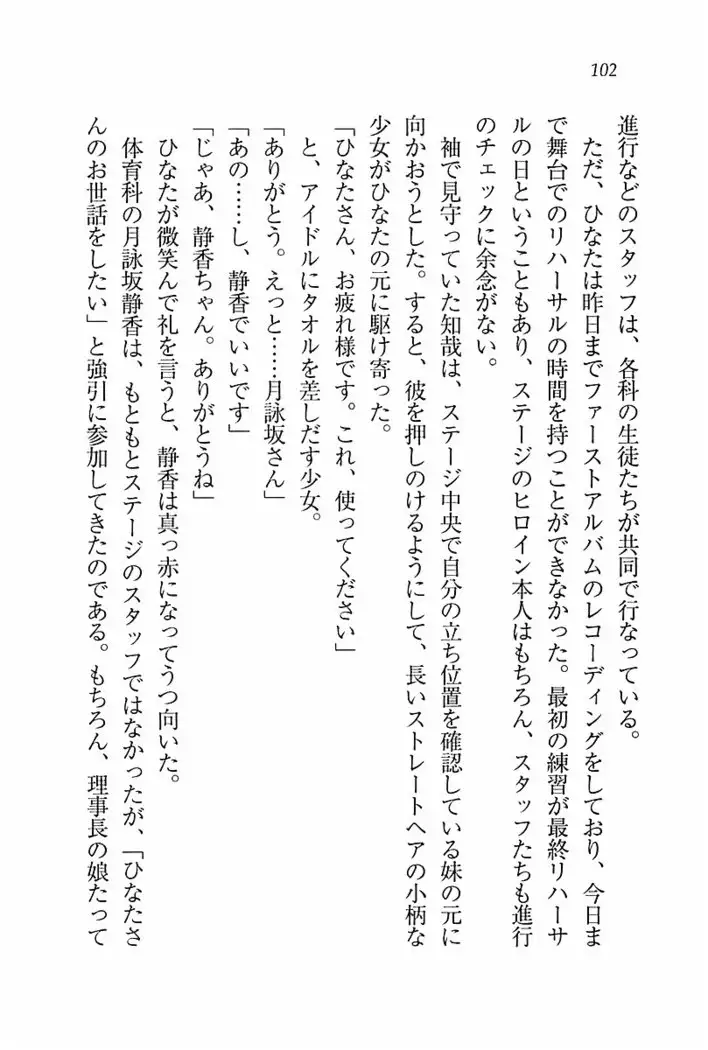 102
進行などのスタッフは、各科の生徒たちが共同で行なっている。
ただ、ひなたは昨日までファーストアルバムのレコーディングをしており、今日ま
で舞台でのリハーサルの時間を持つことができなかった。最初の練習が最終リハーサ
ルの日ということもあり、ステージのヒロイン本人はもちろん、スタッフたちも進行
のチェックに余念がない。
袖で見守っていた知哉は、ステージ中央で自分の立ち位置を確認している妹の元に
向かおうとした。すると、彼を押しのけるようにして、長いストレートヘアの小柄な
少女がひなたの元に駆け寄った。
「ひなたさん、お疲れ様です。これ、使ってください」
と、アイドルにタオルを差しだす少女。
「ありがとう。えっと……月詠坂さん」
「あの……し、静香でいいです」
「じゃあ、静香ちゃん。ありがとうね」
ひなたが微笑んで礼を言うと、静香は真っ赤になってうつ向いた。
体育科の月詠坂静香は、もともとステージのスタッフではなかったが、「ひなたさ
んのお世話をしたい」と強引に参加してきたのである。もちろん、理事長の娘たって